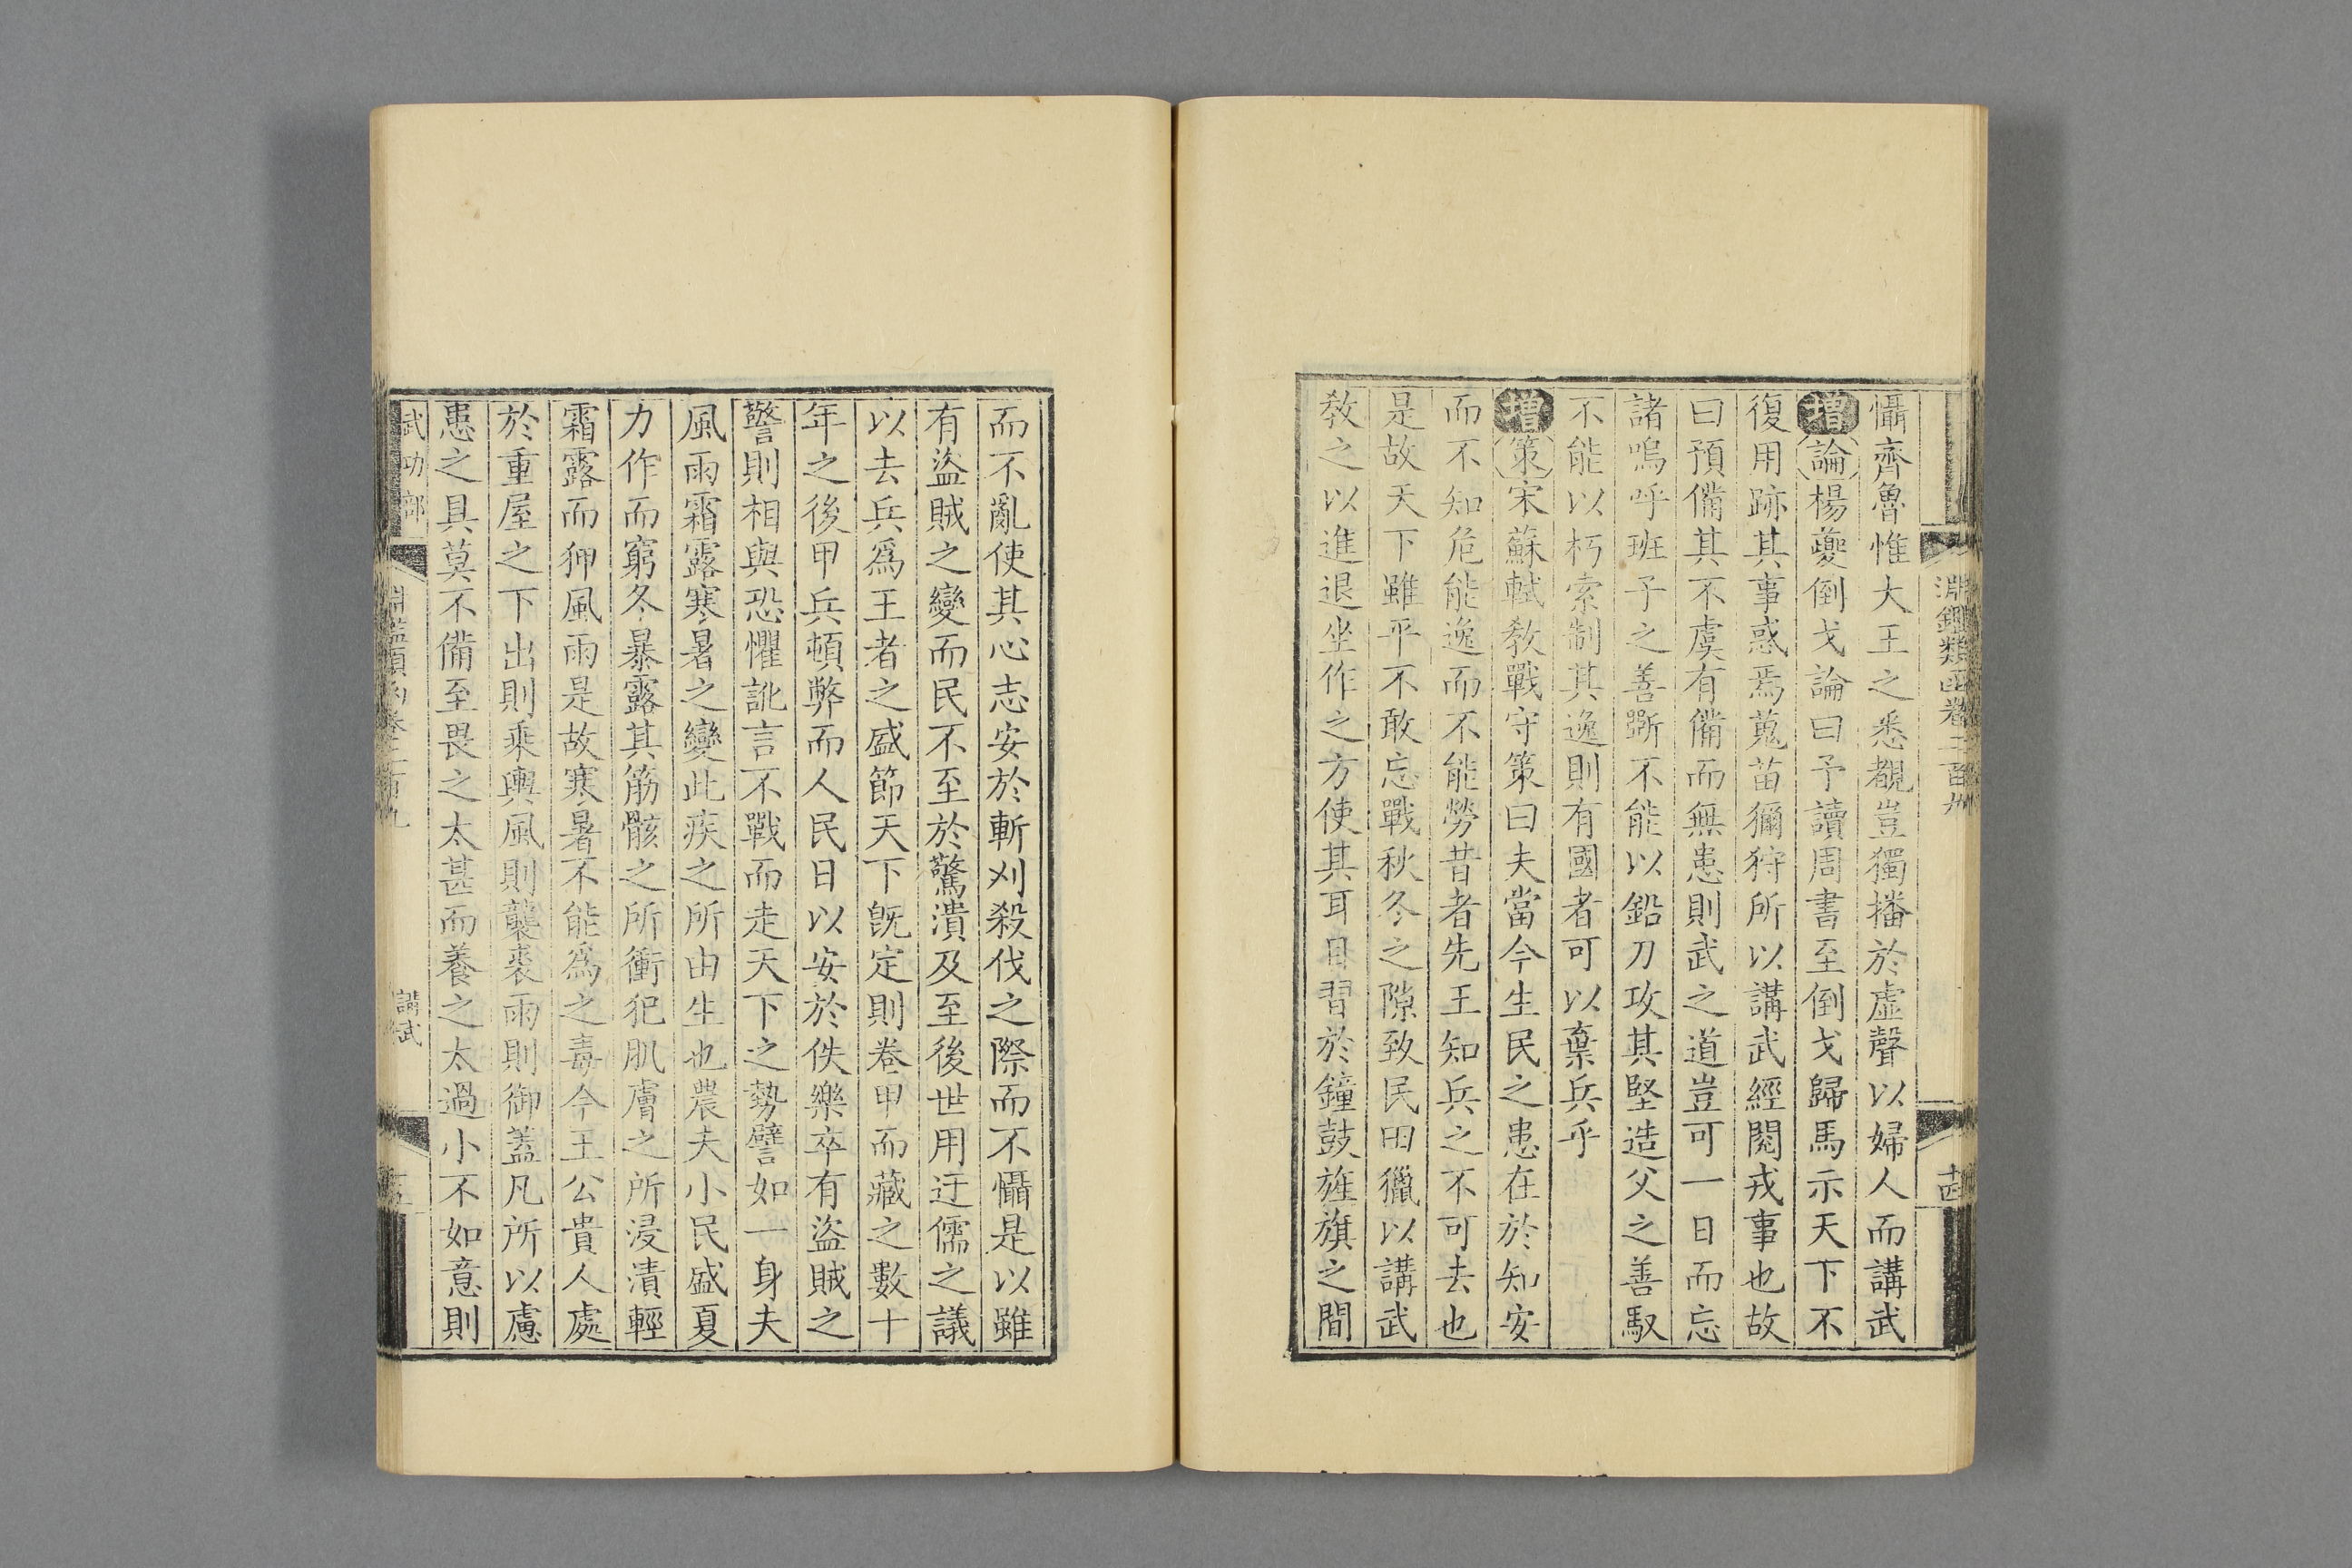 淵鑑類函卷二百九
十四
懾齊魯惟大王之悉觀豈獨播於虛聲以婦人而講武
增論楊夔倒戈論曰予讀周書至倒戈歸馬示天下不
復用跡其事惑焉蒐苗獮狩所以講武經閱戎事也故
曰預備其不虞有備而無患則武之道豈可一日而忘
諸嗚呼班子之善斲不能以鉛刀攻其堅造父之善馭
不能以朽索制其逸則有國者可以棄兵乎
增策宋蘇軾敎戰守策曰夫當今生民之患在於知安
而不知危能逸而不能勞昔者先王知兵之不可去也
是故天下雖平不敢忘戰秋冬之隙致民田獵以講武
敎之以進退坐作之方使其耳目習於鐘鼓旌旗之間
而不亂使其心志安於斬刈殺伐之際而不懾是以雖
有盜賊之變而民不至於驚潰及至後世用迂儒之議
以去兵爲王者之盛節天下旣定則卷甲而藏之數十
年之後甲兵頓弊而人民日以安於佚樂卒有盜賊之
警則相與恐懼訛言不戰而走天下之勢譬如一身夫
風雨霜露寒暑之變此疾之所由生也農夫小民盛夏
力作而窮冬暴露其筋骸之所衝犯肌膚之所浸漬輕
霜露而狎風雨是故寒暑不能爲之毒今王公貴人處
於重屋之下出則乘輿風則襲裘雨則御蓋凡所以慮
患之具莫不備至畏之太甚而養之太過小不如意則
武功部
淵鑑類函卷二百九
講武